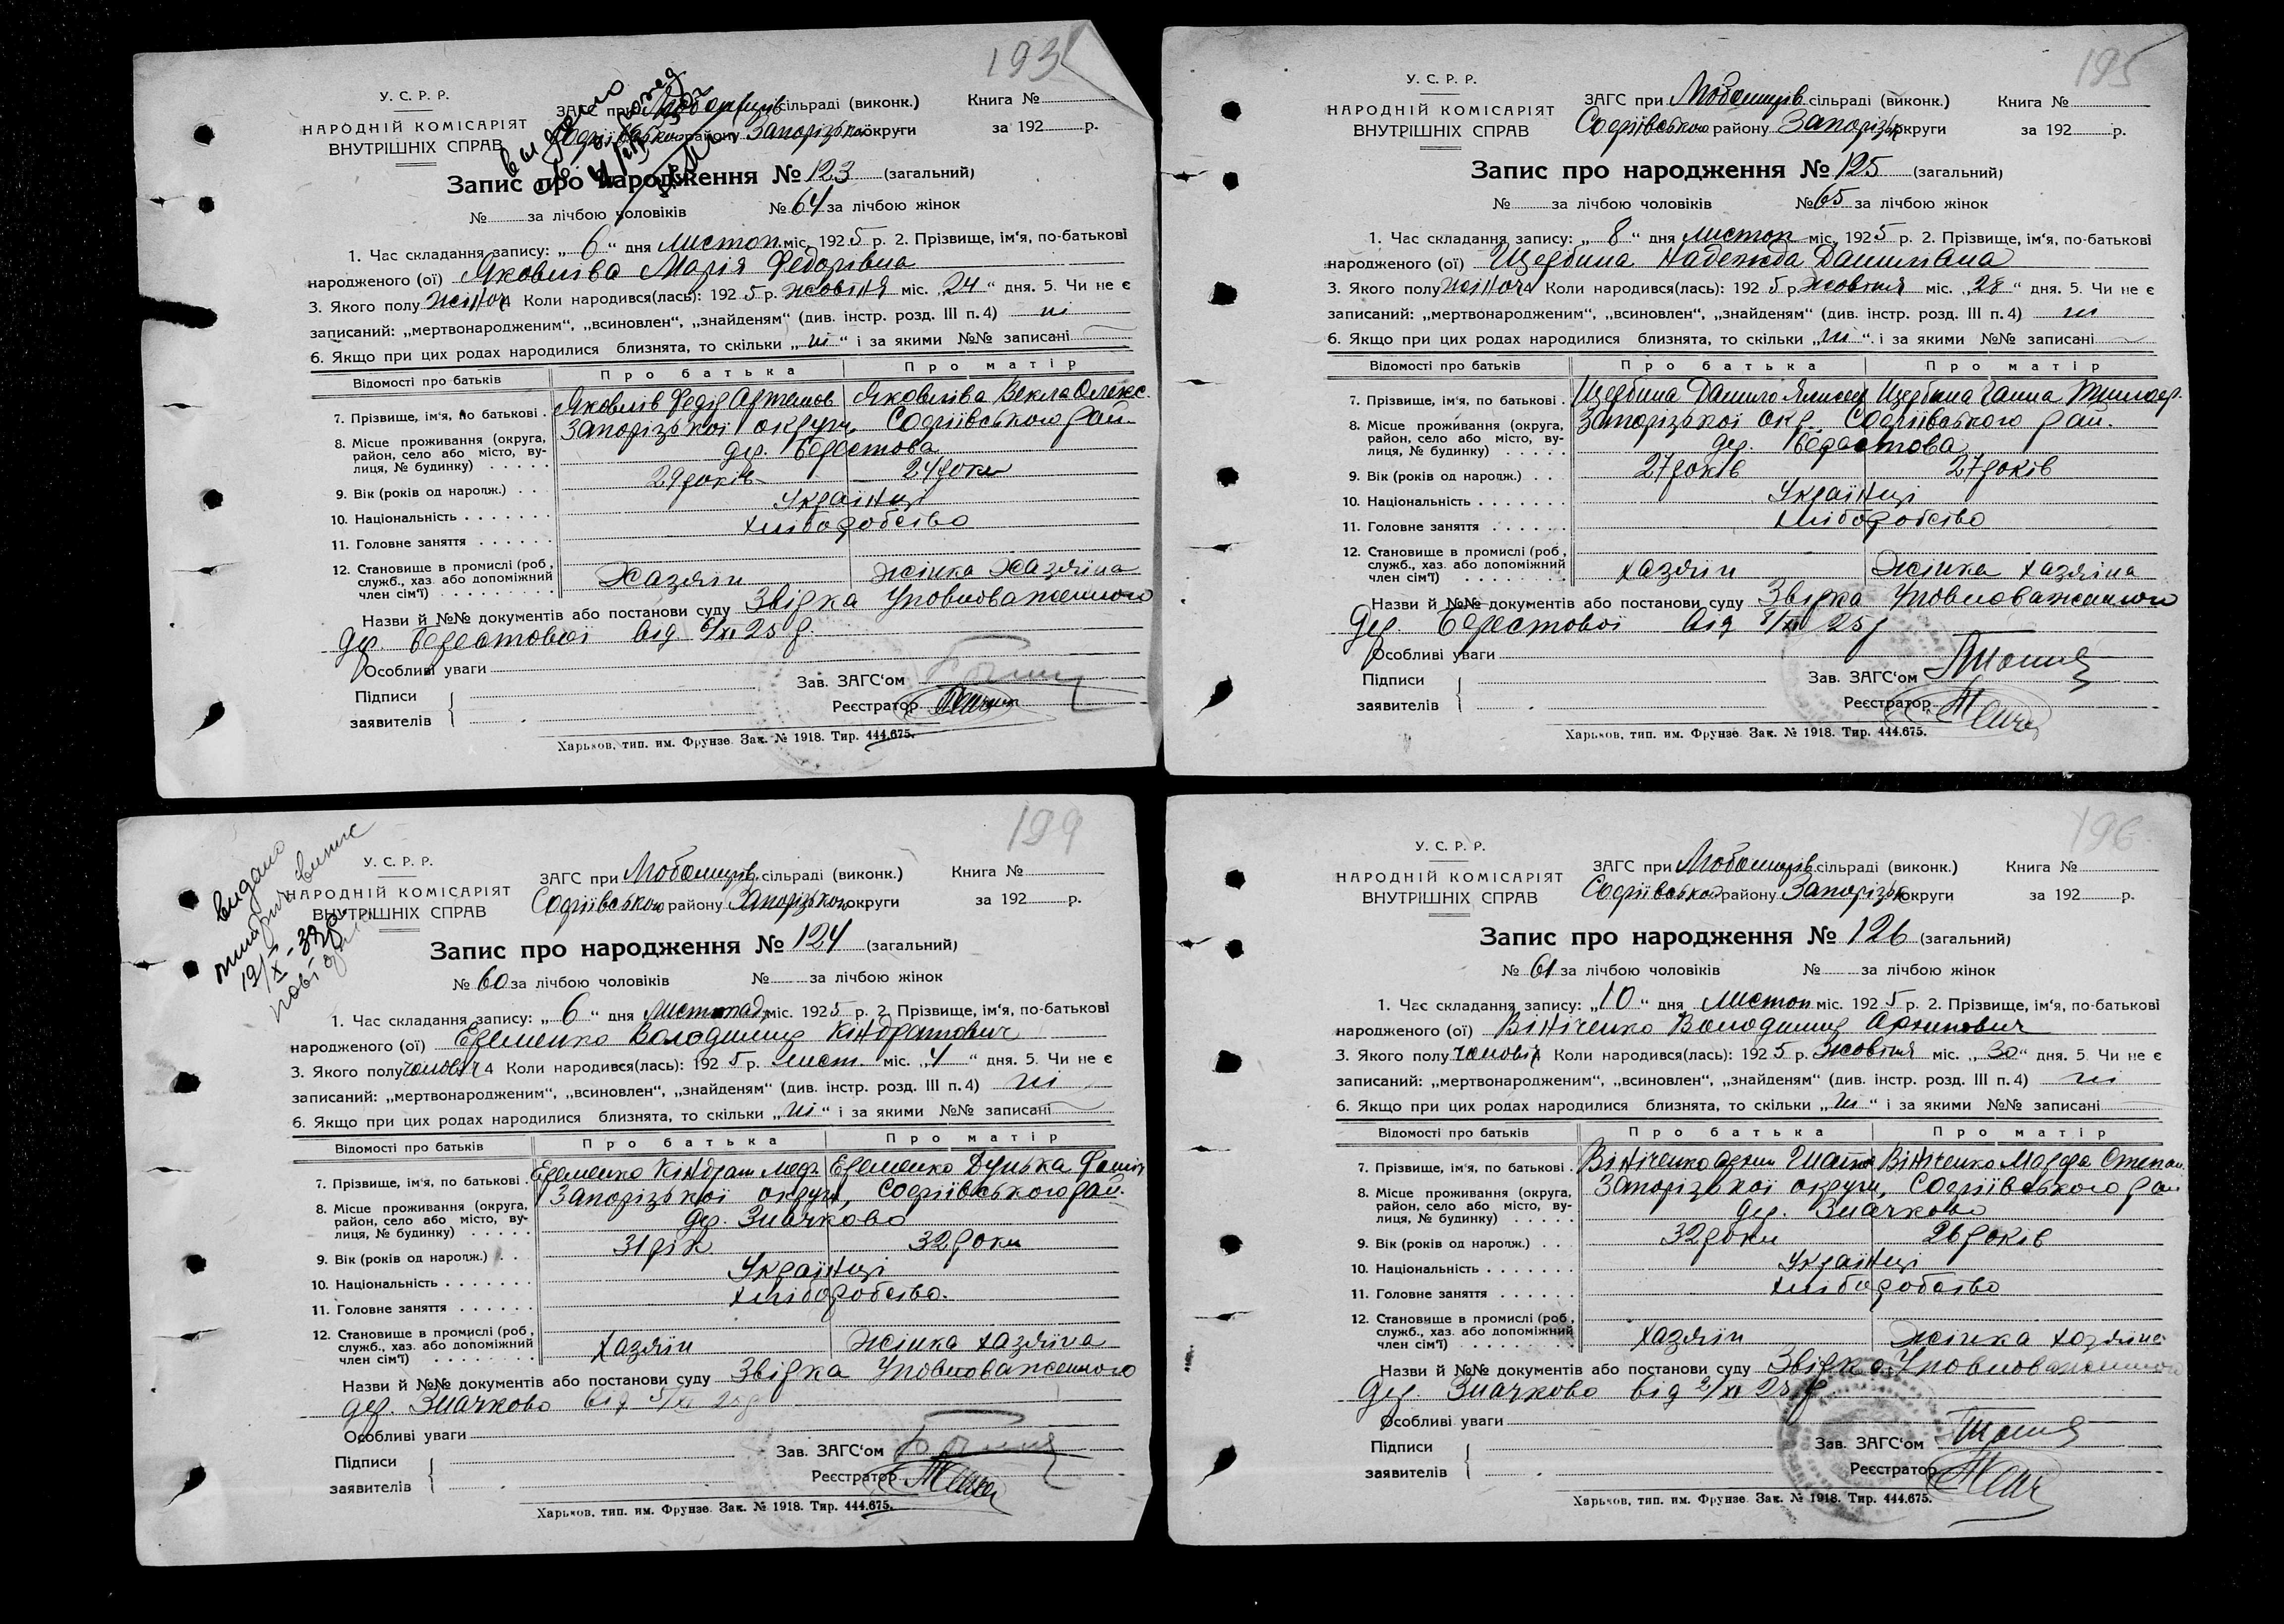 193
У. С. Р. Р.
НАРОДНІЙ КОМІСАРІЯТ
ВНУТРІШНІХ СПРАВ
ЗАГС при Любомирів сільраді (виконк.) Книга №
Софіївського району Запорізької округи за 192 р.
Запис про народження № 123 (загальний)
№ за лічбою чоловіків № 64 за лічбою жінок
1. Час складання запису: „ 6 “ дня листоп. міс. 1925 р. 2. Прізвище, ім‘я, по-батькові
народженого (ої) Яковліва Марія Федорівна
3. Якого полу жіноч 4 Коли народився(лась): 1925 р. жовтня міс. „24“ дня. 5. Чи не є
записаний: „мертвонародженим“, „всиновлен“, „знайденям“ (див. інстр. розд. III п. 4) ні
6. Якщо при цих родах народилися близнята, то скільки „ ні “ і за якими №№ записані
Відомості про батьків Про батька Про матір
7. Прізвище, ім‘я, по батькові. Яковлів Федір Артемов Яковліва Векла Олекс.
8. Місце проживання (округа, район, село або місто, вулиця, № будинку) Запорізької округи, Софіївського рай.
дер. Берестова
9. Вік (років од народж.) 29 років 24 роки
10. Національність Українці
11. Головне заняття хліборобство
12. Становище в промислі (роб., служб., хаз. або допоміжний член сім‘ї) Хазяїн жінка Хазяїна
Назви й №№ документів або постанови суду Звірка Уповноваженного
дер. Берестової від 6/XI 25 р.
Особливі уваги
Підписи
заявителів
Зав. ЗАГС‘ом
Реєстратор
Харьков, тип. им. Фрунзе. Зак. № 1918. Тир. 444.675.
195
У. С. Р. Р.
НАРОДНІЙ КОМІСАРІЯТ
ВНУТРІШНІХ СПРАВ
ЗАГС при Любомирів сільраді (виконк.) Книга №
Софіївського району Запорізьк округи за 192 р.
Запис про народження № 125 (загальний)
№ за лічбою чоловіків № 65 за лічбою жінок
1. Час складання запису: „ 8 “ дня листоп міс. 1925 р. 2. Прізвище, ім‘я, по-батькові
народженого (ої) Щербина Надежда Данилівна
3. Якого полу жіноч 4 Коли народився(лась): 1925 р. жовтня міс. „28“ дня. 5. Чи не є
записаний: „мертвонародженим“, „всиновлен“, „знайденям“ (див. інстр. розд. III п. 4) ні
6. Якщо при цих родах народилися близнята, то скільки „ ні “ і за якими №№ записані
Відомості про батьків Про батька Про матір
7. Прізвище, ім‘я, по батькові. Щербина Данило Щербина Ганна
8. Місце проживання (округа, район, село або місто, вулиця, № будинку) Запорізької окр. Софіївського рай.
дер. Берестова
9. Вік (років од народж.) 27 років 27 років
10. Національність Українці
11. Головне заняття хліборобство
12. Становище в промислі (роб., служб., хаз. або допоміжний член сім‘ї) хазяїн жінка хазяїна
Назви й №№ документів або постанови суду Звірка Уповноваженного
дер. Берестової від 8/XI 25 р
Особливі уваги
Підписи
заявителів
Зав. ЗАГС‘ом
Реєстратор
Харьков, тип. им. Фрунзе. Зак. № 1918. Тир. 444.675.
видано
199
У. С. Р. Р.
НАРОДНІЙ КОМІСАРІЯТ
ВНУТРІШНІХ СПРАВ
ЗАГС при Любомирів. сільраді (виконк.) Книга №
Софіївського району Запорізької округи за 192 р.
Запис про народження № 124 (загальний)
№ 60 за лічбою чоловіків № за лічбою жінок
1. Час складання запису: „ 6 “ дня листопад міс. 1925 р. 2. Прізвище, ім‘я, по-батькові
народженого (ої) Еременко Володимир Кіндратович
3. Якого полу чоловіч 4 Коли народився(лась): 1925 р. лист. міс. „4“ дня. 5. Чи не є
записаний: „мертвонародженим“, „всиновлен“, „знайденям“ (див. інстр. розд. III п. 4) ні
6. Якщо при цих родах народилися близнята, то скільки „ ні “ і за якими №№ записані
Відомості про батьків Про батька Про матір
7. Прізвище, ім‘я, по батькові. Еременко Кіндрат Еременко Дунька
8. Місце проживання (округа, район, село або місто, вулиця, № будинку) Запорізької округи, Софіївського рай.
дер. Значково
9. Вік (років од народж.) 31 рік 32 роки
10. Національність Українці
11. Головне заняття хліборобство.
12. Становище в промислі (роб., служб., хаз. або допоміжний член сім‘ї) хазяїн жінка хазяїна
Назви й №№ документів або постанови суду Звірка Уповноваженного
дер. Значково від 5/XI 25 р
Особливі уваги
Підписи
заявителів
Зав. ЗАГС‘ом
Реєстратор
Харьков, тип. им. Фрунзе. Зак. № 1918. Тир. 444.675.
196
У. С. Р. Р.
НАРОДНІЙ КОМІСАРІЯТ
ВНУТРІШНІХ СПРАВ
ЗАГС при Любомирів. сільраді (виконк.) Книга №
Софіївської району Запорізьк округи за 192 р.
Запис про народження № 126 (загальний)
№ 61 за лічбою чоловіків № за лічбою жінок
1. Час складання запису: „10“ дня листоп міс. 1925 р. 2. Прізвище, ім‘я, по-батькові
народженого (ої) Вініченко Володимир Архипович
3. Якого полу чоловіч 4 Коли народився(лась): 1925 р. жовтня міс. „30“ дня. 5. Чи не є
записаний: „мертвонародженим“, „всиновлен“, „знайденям“ (див. інстр. розд. III п. 4) ні
6. Якщо при цих родах народилися близнята, то скільки „ ні “ і за якими №№ записані
Відомості про батьків Про батька Про матір
7. Прізвище, ім‘я, по батькові. Вініченко Архип Вініченко Марфа Степан.
8. Місце проживання (округа, район, село або місто, вулиця, № будинку) Запорізької округи, Софіївського рай
дер. Значково
9. Вік (років од народж.) 32 роки 26 років
10. Національність Українці
11. Головне заняття хліборобство
12. Становище в промислі (роб., служб., хаз. або допоміжний член сім‘ї) хазяїн жінка хазяїна
Назви й №№ документів або постанови суду Звірка Уповноваженного
дер. Значково від 2/XI 25 р
Особливі уваги
Підписи
заявителів
Зав. ЗАГС‘ом
Реєстратор
Харьков, тип. им. Фрунзе. Зак. № 1918. Тир. 444.675.